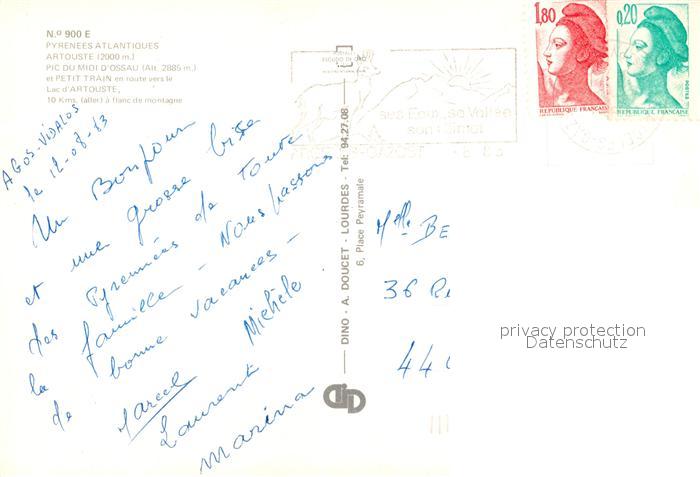 N.º 900 E
PYRENEES ATLANTIQUES
ARTOUSTE (2000 m.)
PIC DU MIDI D'OSSAU (Alt. 2885 m.)
et PETIT TRAIN en route vers le
Lac d'ARTOUSTE,
10 Kms. (aller) à flanc de montagne
AGOS-VIDALOS
le 12-08-83
Un Bonjour
et une grosse bise
des Pyrénées de toute
la famille - Nous passons
de bonne vacances -
Marcel Michèle
Laurent
Marina
DINO - A. DOUCET - LOURDES - Tel: 94.27.08
6, Place Peyramale
1,80
REPUBLIQUE FRANÇAISE
0,20
POSTES
REPUBLIQUE FRANÇAISE
son Climat
Mlle BE
36 R
44
privacy protection
Datenschutz